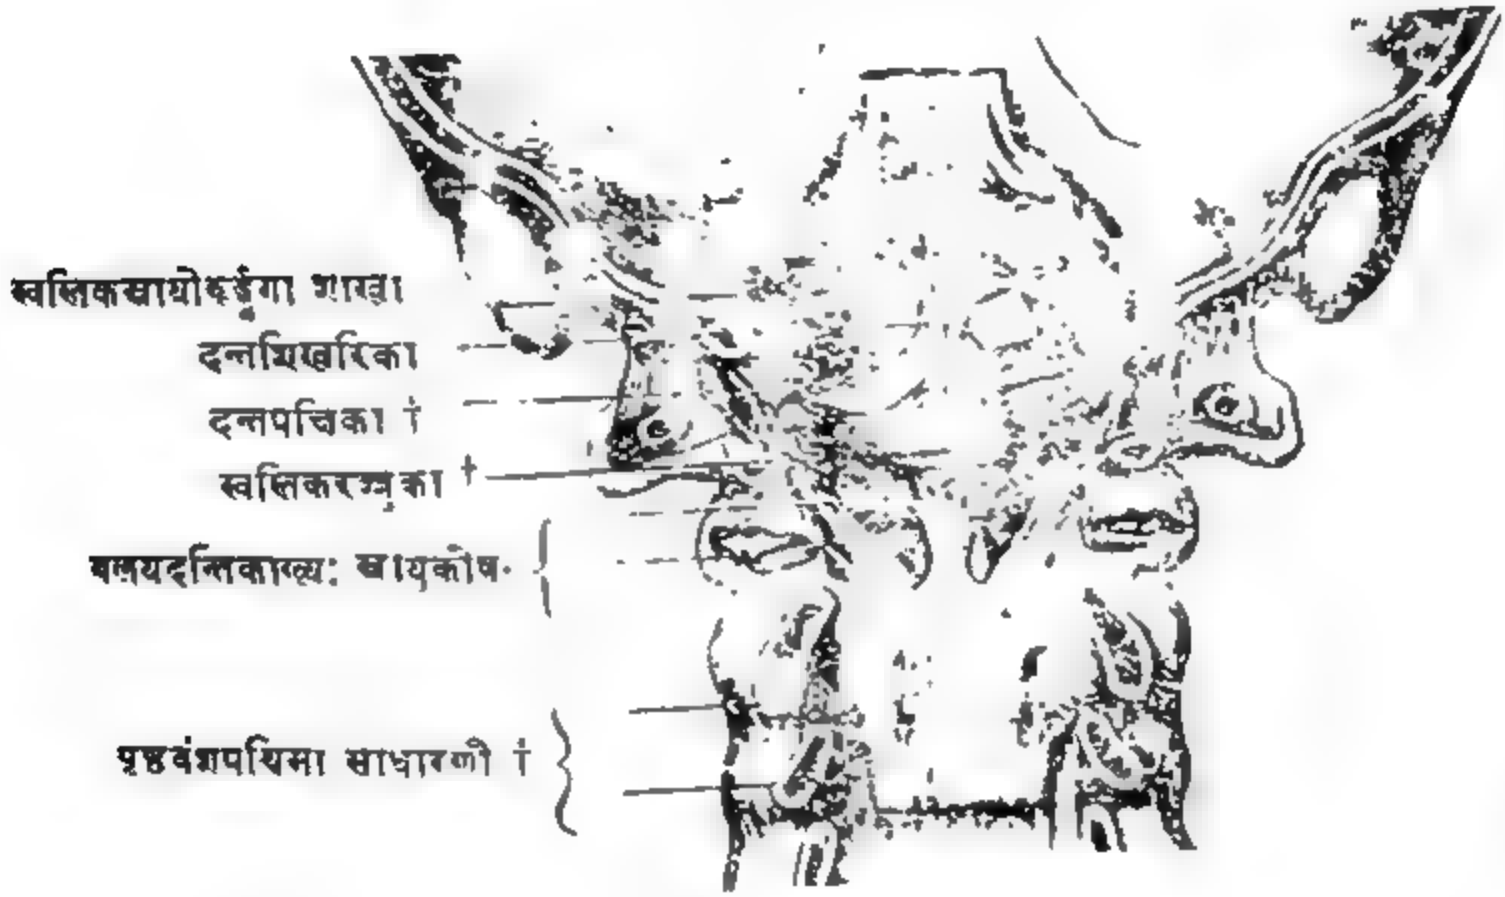 स्वस्तिकस्नायोरूर्द्ध्वगा शाखा
दन्तशिखरिका
दन्तपक्षिका †
स्वस्तिकरज्जुका †
वलयदन्तिकाख्यः स्नायुकोष-
पृष्ठवंशपश्चिमा साधारणी †